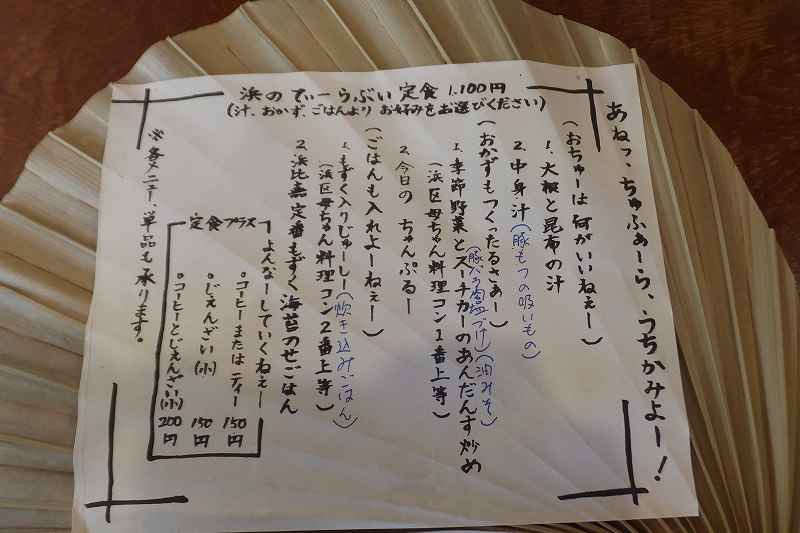 浜のてぃーらぶい定食 1,100円
(汁、おかず、ごはんより お好みをお選びください)
あねっ、ちゅふぁーら、うちかみよー!
(おちゅーは何がいいねぇー)
1. 大根と昆布の汁
2. 中身汁(豚もつの吸いもの)
(おかずもつくったるさぁー)
1. 季節野菜とスーチカーのあんだんす炒め
(豚バラ肉塩づけ)(油みそ)
(浜区母ちゃん料理コン1番上等)
2. 今日の ちゃんぷるー
(ごはんも入れよーねぇー)
1. もずく入りじゅーしー(炊き込みごはん)
(浜区母ちゃん料理コン2番上等)
2. 浜比嘉定番もずく海苔のせごはん
定食プラス
よんなーしていくねぇー
○コーヒーまたはティー 150円
○じぇんざい(小) 150円
○コーヒーとじぇんざい(小) 200円
※各メニュー、単品も承ります。